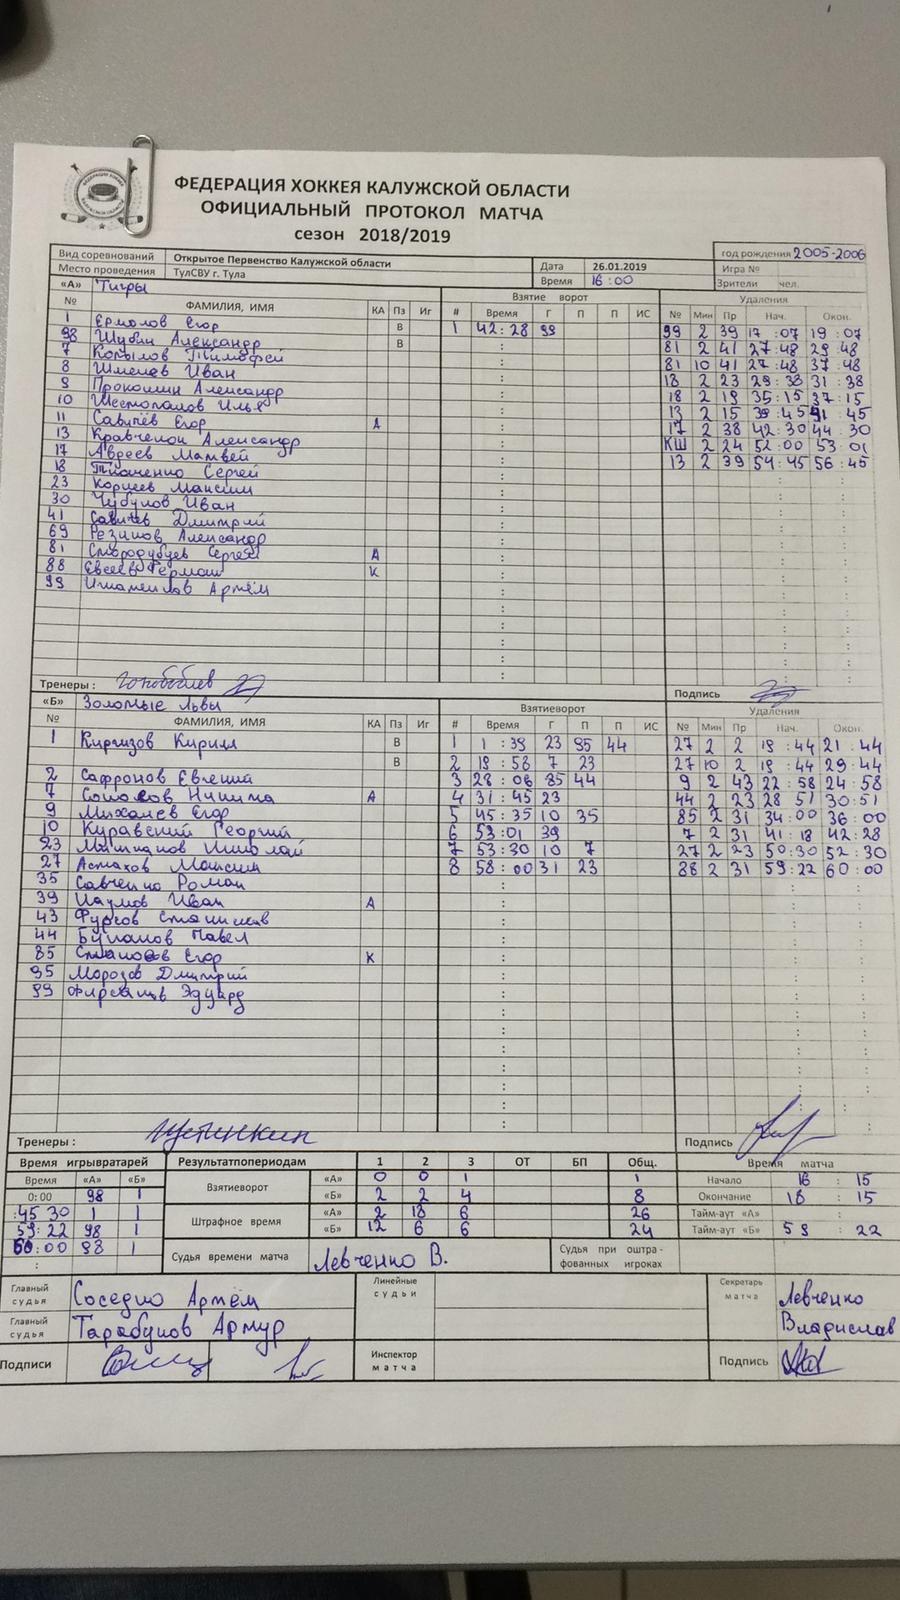 ФЕДЕРАЦИЯ ХОККЕЯ КАЛУЖСКОЙ ОБЛАСТИ
ОФИЦИАЛЬНЫЙ ПРОТОКОЛ МАТЧА
сезон 2018/2019
год рождения 2005-2006
Вид соревнований Открытое Первенство Калужской области Дата 26.01.2019 Игра №
Место проведения ТулСВУ г. Тула Время 16:00 Зрители чел.
«А» Тигры Взятие ворот Удаления
№ ФАМИЛИЯ, ИМЯ КА Пз Иг # Время Г П П ИС № Мин Пр Нач. Окон.
1 Ермолов Егор В 1 42:28 99 99 2 39 17:07 19:07
98 Шубин Александр В 81 2 41 27:48 29:48
7 Копылов Тимофей 81 10 41 27:48 37:48
8 Шмелев Иван 18 2 23 29:38 31:38
9 Прокошин Александр 18 2 19 35:15 37:15
10 Шестопалов Илья 13 2 15 39:45 41:45
11 Савичев Егор А 17 2 38 42:30 44:30
13 Кравченко Александр КШ 2 24 52:00 53:01
17 Авреев Матвей 13 2 39 54:45 56:45
18 Ткаченко Сергей
23 Корнеев Максим
30 Чубуков Иван
41 Савичев Дмитрий
69 Резинов Александр
81 Стародубцев Сергей А
88 Евсеев Герман К
99 Артём
Тренеры : Подпись
«Б» Золотые Львы Взятиеворот Удаления
№ ФАМИЛИЯ, ИМЯ КА Пз Иг # Время Г П П ИС № Мин Пр Нач. Окон.
1 Киргизов Кирилл В 1 1:39 23 95 44 27 2 2 19:44 21:44
В 2 19:58 7 23 27 10 2 19:44 29:44
2 Сафронов Евгений 3 28:06 85 44 9 2 43 22:58 24:58
7 Соколов Никита А 4 31:45 23 44 2 23 28 51 30:51
9 Михалев Егор 5 45:35 10 35 85 2 31 34:00 36:00
10 Куравский Георгий 6 53:01 39 7 2 31 41:18 42:28
23 Николай 7 53:30 10 7 27 2 23 50:30 52:30
27 Астахов Максим 8 58:00 31 23 88 2 31 59:22 60:00
35 Савченко Роман
39 Наумов Иван А
43 Фурсов Станислав
44 Булатов Павел
85 Егор К
95 Морозов Дмитрий
99 Эдуард
Тренеры : Щетинкин Подпись
Время игрывратарей Результатпопериодам 1 2 3 ОТ БП Общ. Время матча
Время «А» «Б» Взятиеворот «А» 0 0 1 1 Начало 16:15
0:00 98 1 «Б» 2 2 4 8 Окончание 18:15
:45 30 1 1 Штрафное время «А» 2 18 6 26 Тайм-аут «А» :
59:22 98 1 «Б» 12 6 6 24 Тайм-аут «Б» 59:22
60:00 98 1 Судья времени матча Левченко В. Судья при оштра-
фованных игроках
Главный судья Соседко Артём Линейные судьи Секретарь матча Левченко
Главный судья Тарабунов Артур Владислав
Подписи Инспектор матча Подпись